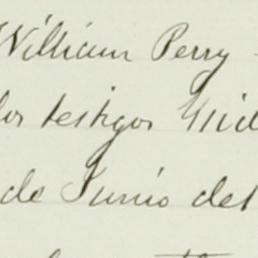 William Perry
los testigos
de Junio del